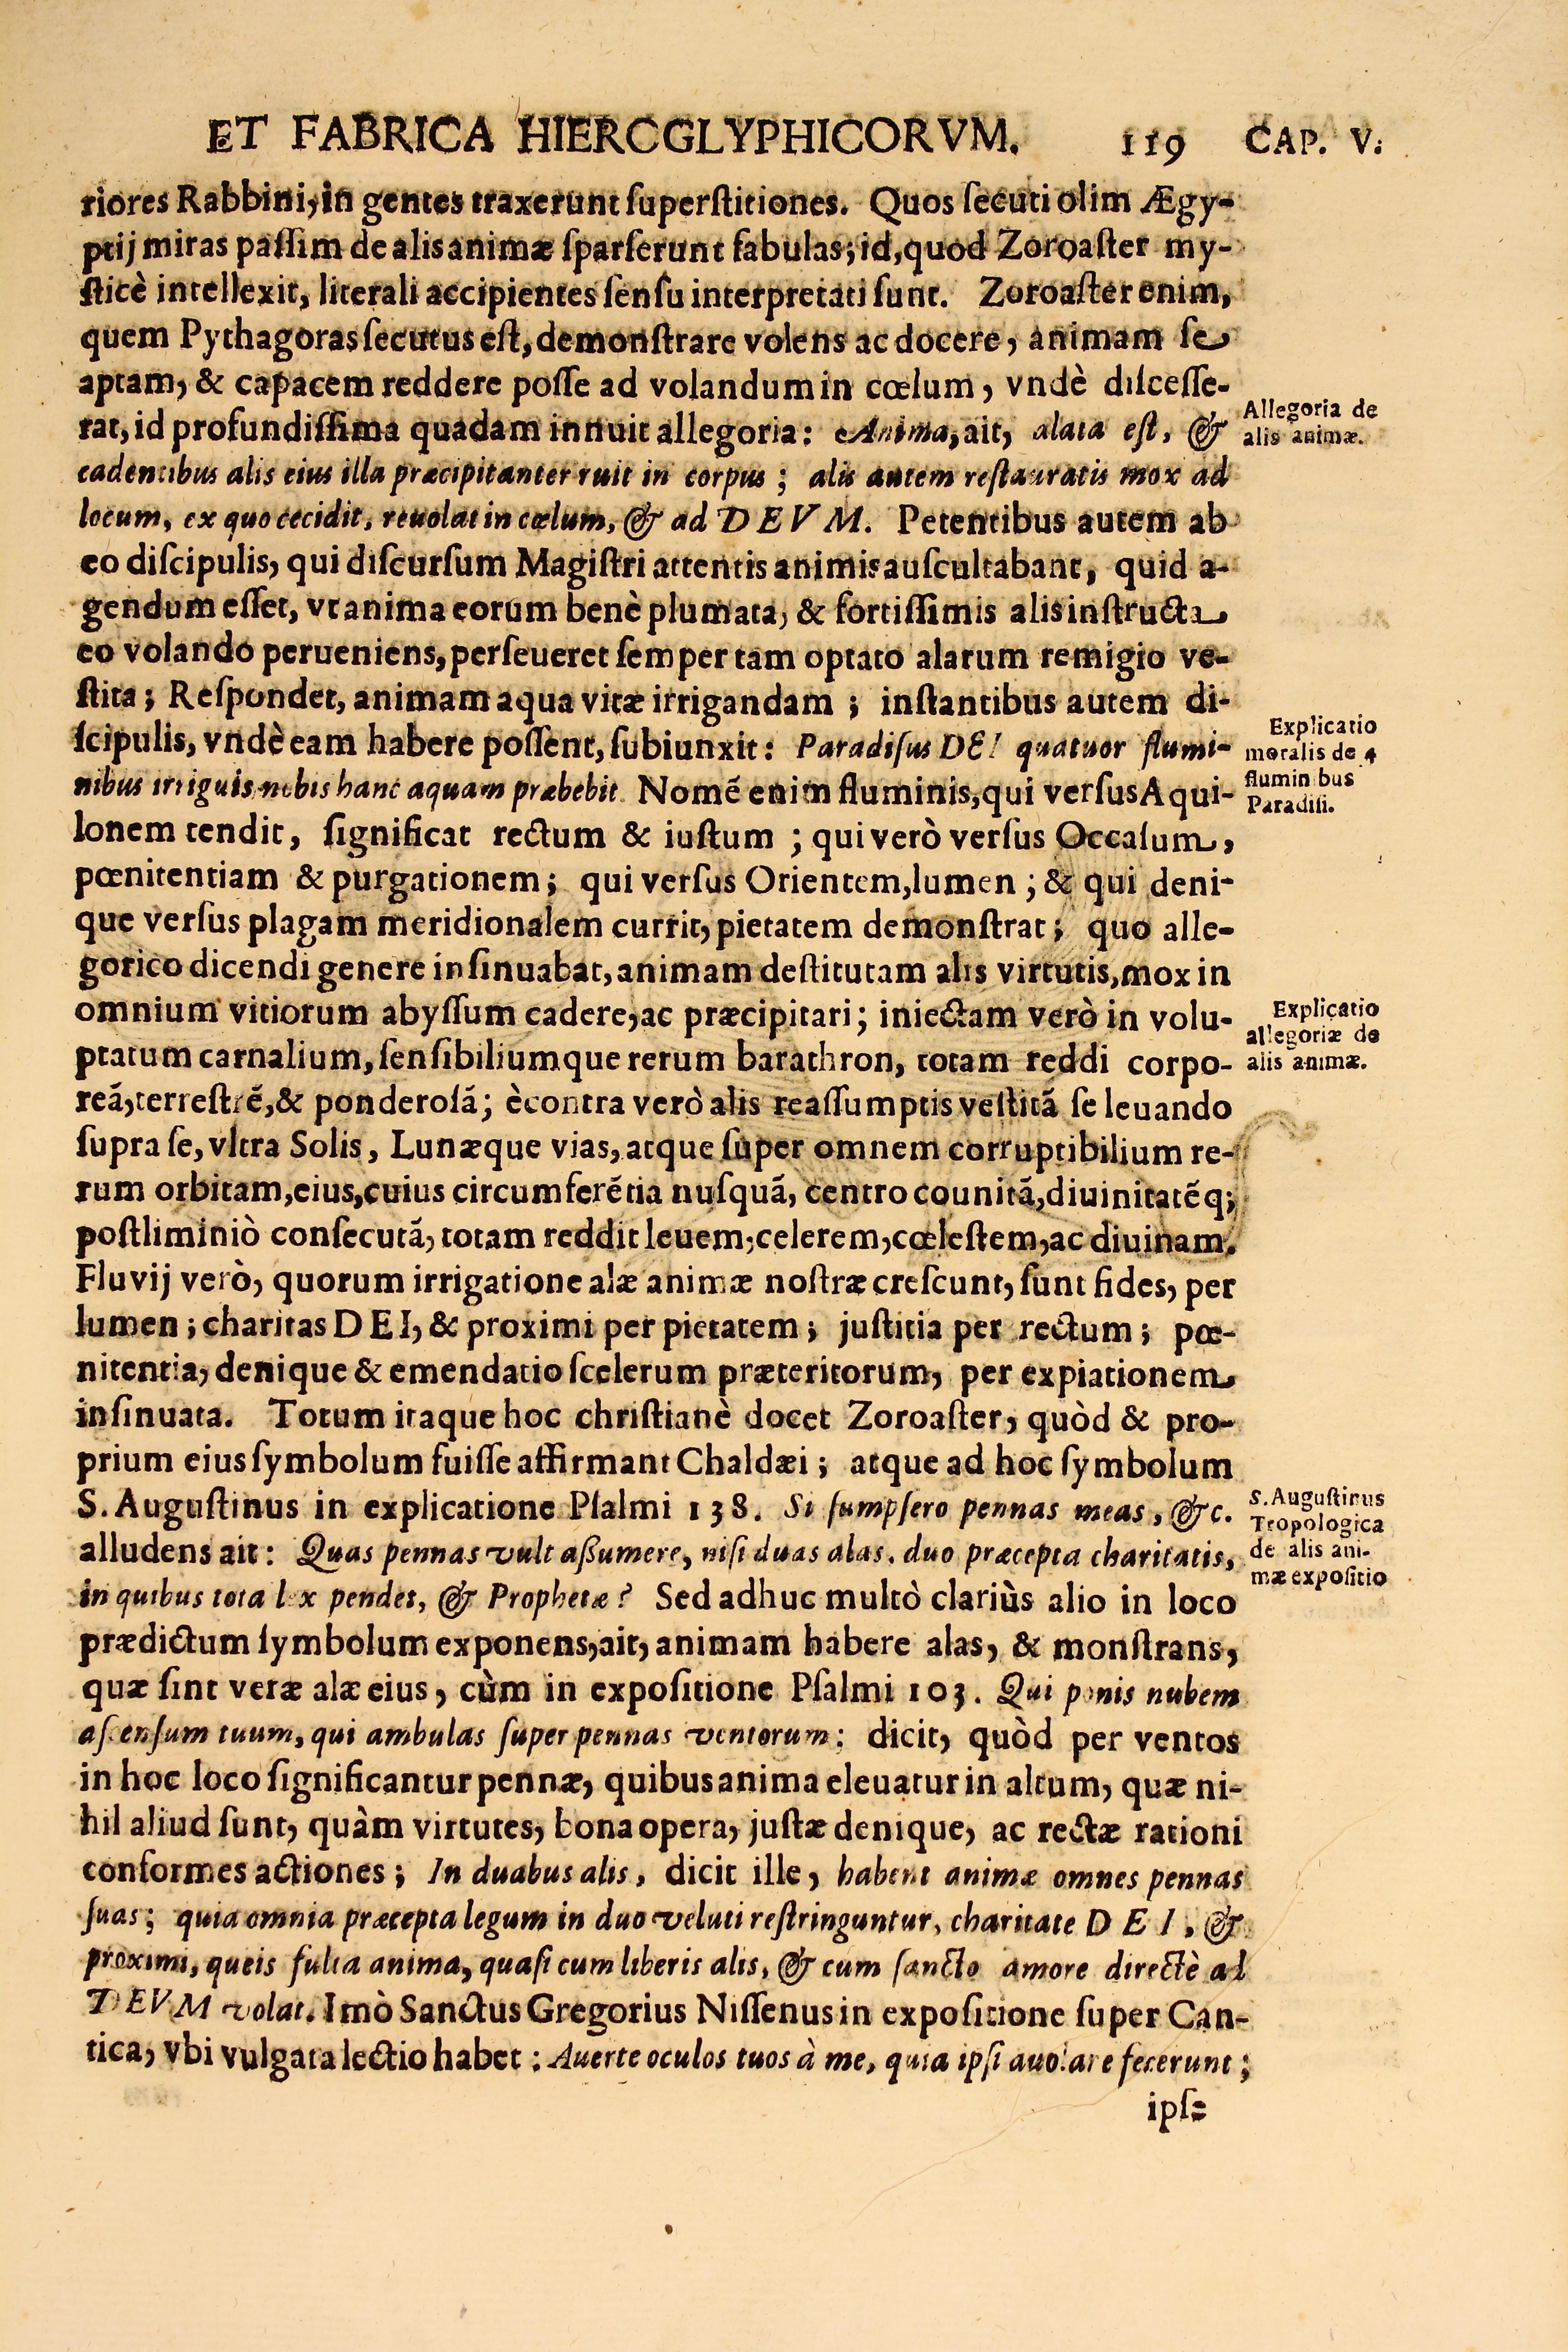 ET FABRICA HIERCGLYPHICORVM. 119 CAP. V.
riores Rabbini, in gentes traxerunt superstitiones. Quos secuti olim Ægy-
ptij miras passim de alis animæ sparserunt fabulas; id, quod Zoroaster my-
sticè intellexit, literali accipientes sensu interpretati sunt. Zoroaster enim,
quem Pythagoras secutus est, demonstrare volens ac docere, animam se
aptam, & capacem reddere posse ad volandum in cœlum, vndè discesse-
rat, id profundissima quadam innuit allegoria: Anima, ait, alata est, &
Allegoria de
alis animæ.
cadentibus alis eius illa præcipitanter ruit in corpus; alis autem restauratis mox ad
locum, ex quo cecidit, reuolat in cœlum, & ad DEVM. Petentibus autem ab
eo discipulis, qui discursum Magistri attentis animis auscultabant, quid a-
gendum esset, vt anima eorum benè plumata, & fortissimis alis instructa
eo volando perueniens, perseueret semper tam optato alarum remigio ve-
stita; Respondet, animam aqua vitæ irrigandam; instantibus autem di-
scipulis, vndè eam habere possent, subiunxit: Paradisus DEI quatuor flumi-
nibus irriguis nobis hanc aquam præbebit. Nomē enim fluminis, qui versus Aqui-
Explicatio
moralis de 4
flumin bus
Paradisi.
lonem tendit, significat rectum & iustum; qui verò versus Occasum,
pœnitentiam & purgationem; qui versus Orientem, lumen; & qui deni-
que versus plagam meridionalem currit, pietatem demonstrat; quo alle-
gorico dicendi genere insinuabat, animam destitutam alis virtutis, mox in
omnium vitiorum abyssum cadere, ac præcipitari; iniectam verò in volu-
ptatum carnalium, sensibiliumque rerum barathron, totam reddi corpo-
Explicatio
allegoriæ de
alis animæ.
reā, terrestrē, & ponderosā; ècontra verò alis reassumptis vestitā se leuando
supra se, vltra Solis, Lunæque vias, atque super omnem corruptibilium re-
rum orbitam, eius, cuius circumferētia nusquā, centro counitā, diuinitatēq;
postliminiò consecutā, totam reddit leuem, celerem, cœlestem, ac diuinam.
Fluvij verò, quorum irrigatione alæ animæ nostræ crescunt, sunt fides, per
lumen; charitas DEI, & proximi per pietatem; justitia per rectum; pœ-
nitentia, denique & emendatio scelerum præteritorum, per expiationem
insinuata. Totum itaque hoc christianè docet Zoroaster, quòd & pro-
prium eius symbolum fuisse affirmant Chaldæi; atque ad hoc symbolum
S. Augustinus in explicatione Psalmi 138. Si sumpsero pennas meas, &c.
alludens ait: Quas pennas vult assumere, nisi duas alas, duo præcepta charitatis,
S. Augustinus
Tropologica
de alis ani-
mæ expositio
in quibus tota lex pendet, & Prophetæ? Sed adhuc multò clariùs alio in loco
prædictum symbolum exponens, ait, animam habere alas, & monstrans,
quæ sint veræ alæ eius, cùm in expositione Psalmi 103. Qui ponis nubem
ascensum tuum, qui ambulas super pennas ventorum: dicit, quòd per ventos
in hoc loco significantur pennæ, quibus anima eleuatur in altum, quæ ni-
hil aliud sunt, quàm virtutes, bona opera, justæ denique, ac rectæ rationi
conformes actiones; In duabus alis, dicit ille, habent animæ omnes pennas
suas; quia omnia præcepta legum in duo veluti restringuntur, charitate DEI, &
proximi, queis fulta anima, quasi cum liberis alis, & cum sancto amore directè ad
DEVM volat. Imò Sanctus Gregorius Nissenus in expositione super Can-
tica, vbi vulgata lectio habet: Auerte oculos tuos à me, quia ipsi auolare fecerunt;
ipsæ